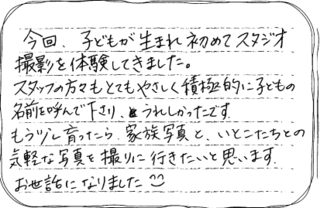 今回、子どもが生まれ初めてスタジオ
撮影を体験してきました。
スタッフの方々もとてもやさしく積極的に子どもの
名前を呼んで下さり、とうれしかったです
もう少し育ったら、家族写真と、いとこたちとの
気軽な写真を撮りに行きたいと思います
お世話になりました